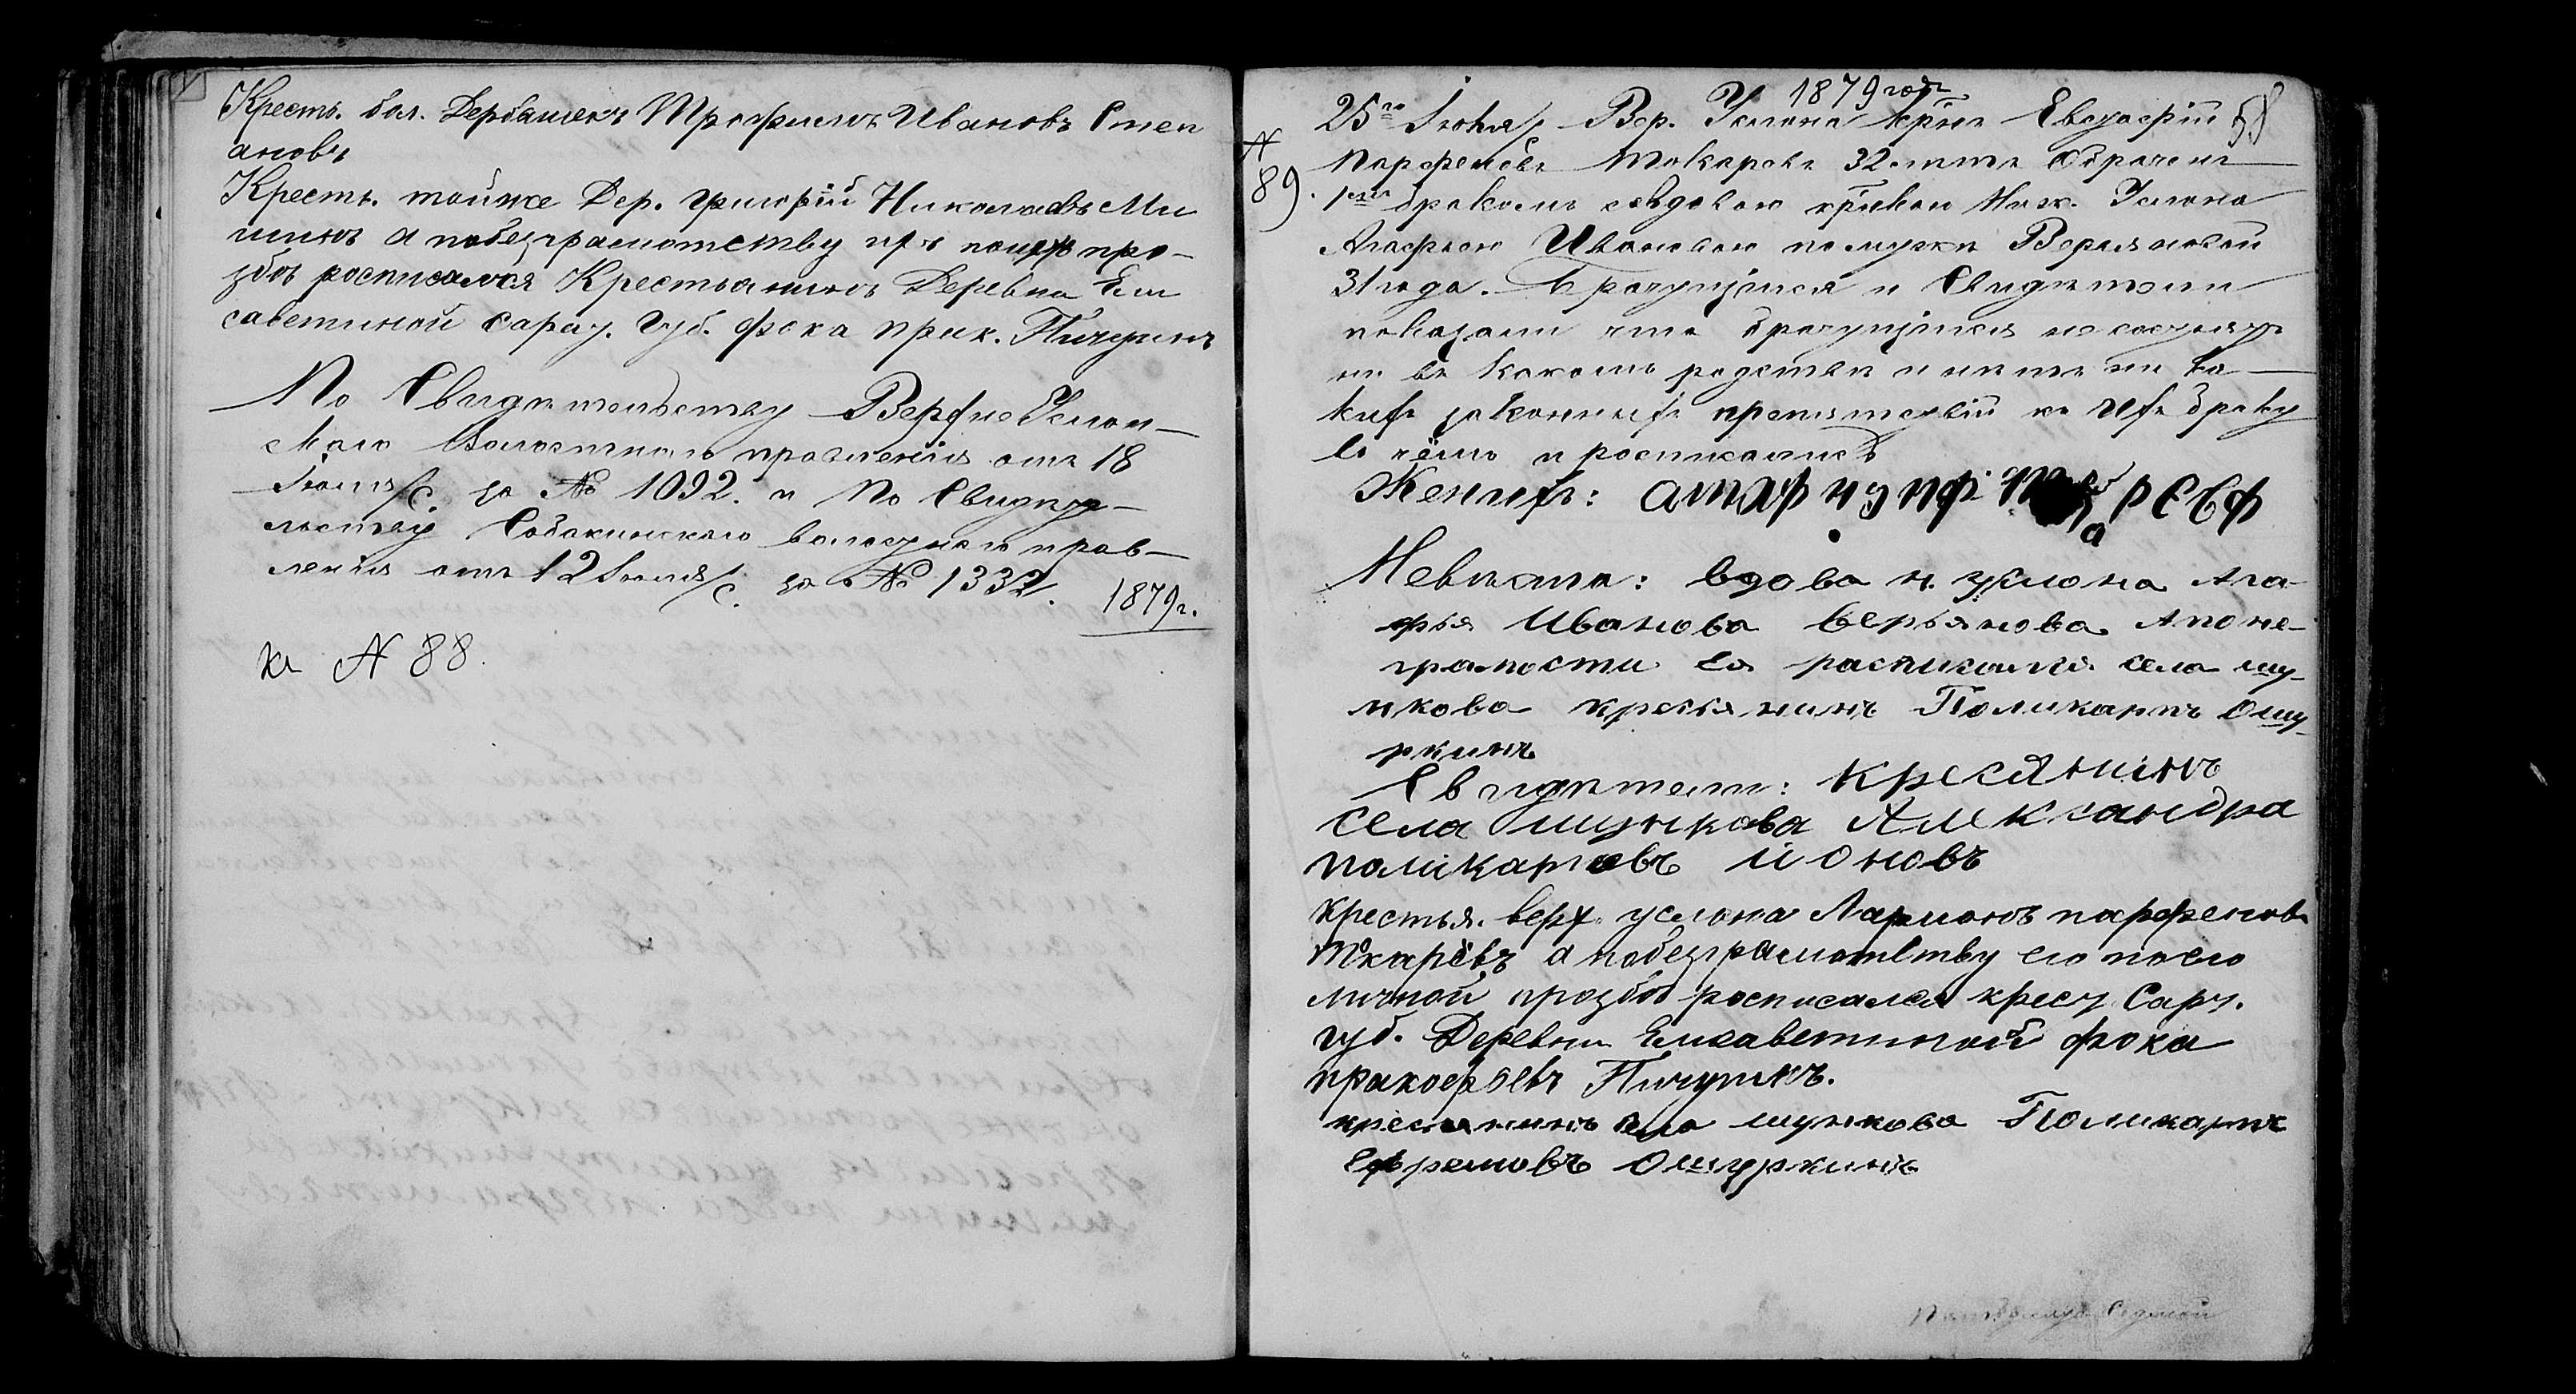 Крестъ. бол. Дербышекъ Трофимъ Ивановъ Степ
ановъ
Крестъ. тойже Дер. Григорій Николаевъ Ми
шинъ а по безграмотству ихъ по ихъ про-
збѣ росписался Крестьянинъ Деревни Ели
саветиной сарат. Губ. фока прок. Пичугинъ
По Свидѣтельству Верхне Услон-
скаго Волостнаго правленія отъ 18
Іюля/с. за № 1092. и По Свидѣте-
льству Собакинскаго волостнаго прав-
ленія отъ 12 Іюля/с. за № 1332.
1879 г.
къ № 88.
1879 года
25го Іюля, Вер. Услона кр̃нъ Евстафій
№ 89.
Парфеновъ Токаревъ 32 лѣтъ обрачень
1мъ бракомъ со вдовою кр̃икою Ниж. Услона
Агафьею Ивановою по мужѣ Верьяновой
31 года. Брачущіеся и Свидѣтели
показали что брачущіеся не состоятъ
ни въ какомъ родствѣ и нѣтъ ни ка-
кихъ законныхъ препятствій къ ихъ браку
въ чёмъ и росписались
Женихъ:
Невѣста: вдова н. услона Ага-
фья Иванова Верьянова А по не-
грамости ея расписался села шу-
нкова кресьянинъ Поликарпъ Ошу-
ркинъ
Свидѣтели: кресянинъ
села шункова Александра
поликарповъ ионовъ
Крестья. верх. услона Ларионъ парфеновъ
Токарёвъ а по безграмотству его по его
личной прозбѣ росписался крест Сарт.
губ. Деревни Елисаветиной фока
пракофьевъ Пичугинъ.
кресянинъ села шункова Поликарпъ
Ефремовъ Ошуркинъ